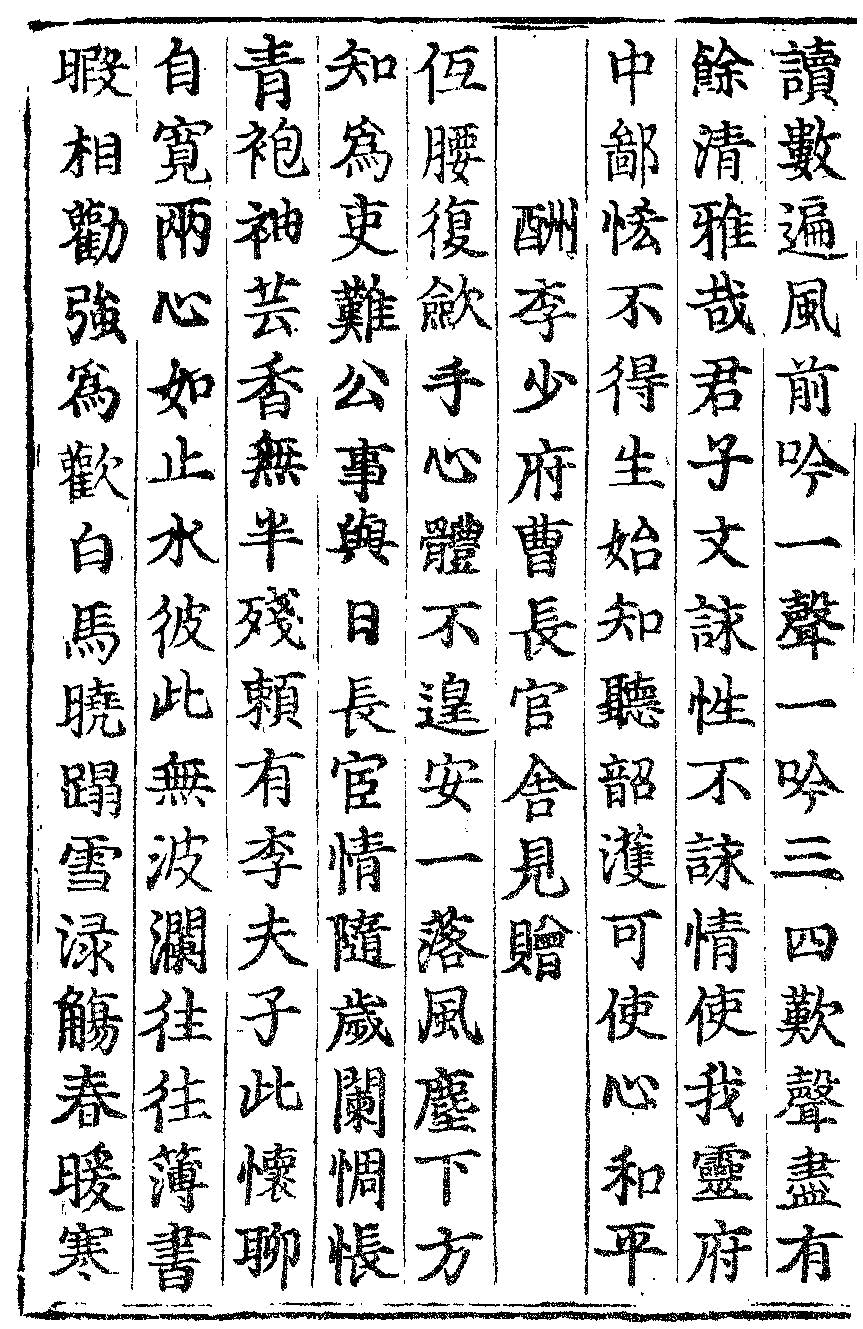 讀數遍風前吟一聲一吟三四歎聲盡有
餘清雅哉君子文詠性不詠情使我靈府
中鄙悋不得生始知聽韶濩可使心和平
酬李少府曹長官舍見贈
低腰復斂手心體不遑安一落風塵下方
知為吏難公事與日長宦情隨歲闌惆悵
青袍袖芸香無半殘賴有李夫子此懷聊
自寬兩心如止水彼此無波瀾往往薄書
暇相勸強為歡白馬曉蹋雪渌觴春暖寒